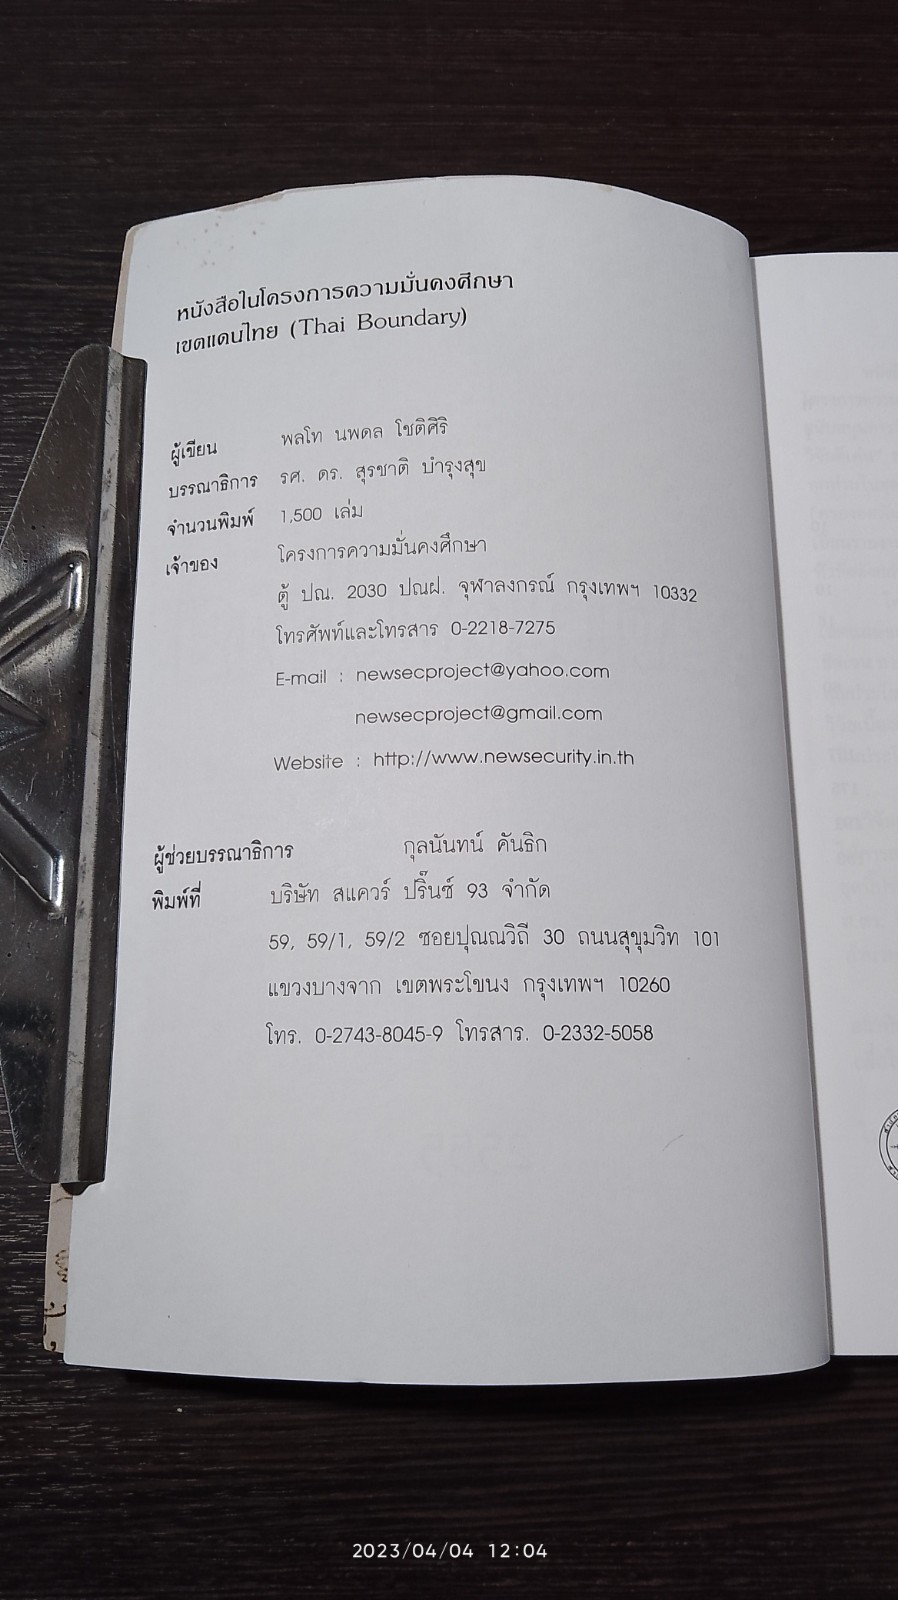 หนังสือในโครงการความมั่นคงศึกษา
เขตแดนไทย (Thai Boundary)
ผู้เขียน พลโท นพดล โชติศิริ
บรรณาธิการ รศ. ดร. สุรชาติ บำรุงสุข
จำนวนพิมพ์ 1,500 เล่ม
เจ้าของ โครงการความมั่นคงศึกษา
ตู้ ปณ. 2030 ปณฝ. จุฬาลงกรณ์ กรุงเทพฯ 10332
โทรศัพท์และโทรสาร 0-2218-7275
E-mail : newsecproject@yahoo.com
newsecproject@gmail.com
Website : http://www.newsecurity.in.th
ผู้ช่วยบรรณาธิการ กุลนันทน์ คันธิก
พิมพ์ที่ บริษัท สแควร์ ปริ๊นซ์ 93 จำกัด
59, 59/1, 59/2 ซอยปุณณวิถี 30 ถนนสุขุมวิท 101
แขวงบางจาก เขตพระโขนง กรุงเทพฯ 10260
โทร. 0-2743-8045-9 โทรสาร. 0-2332-5058
2023/04/04 12:04